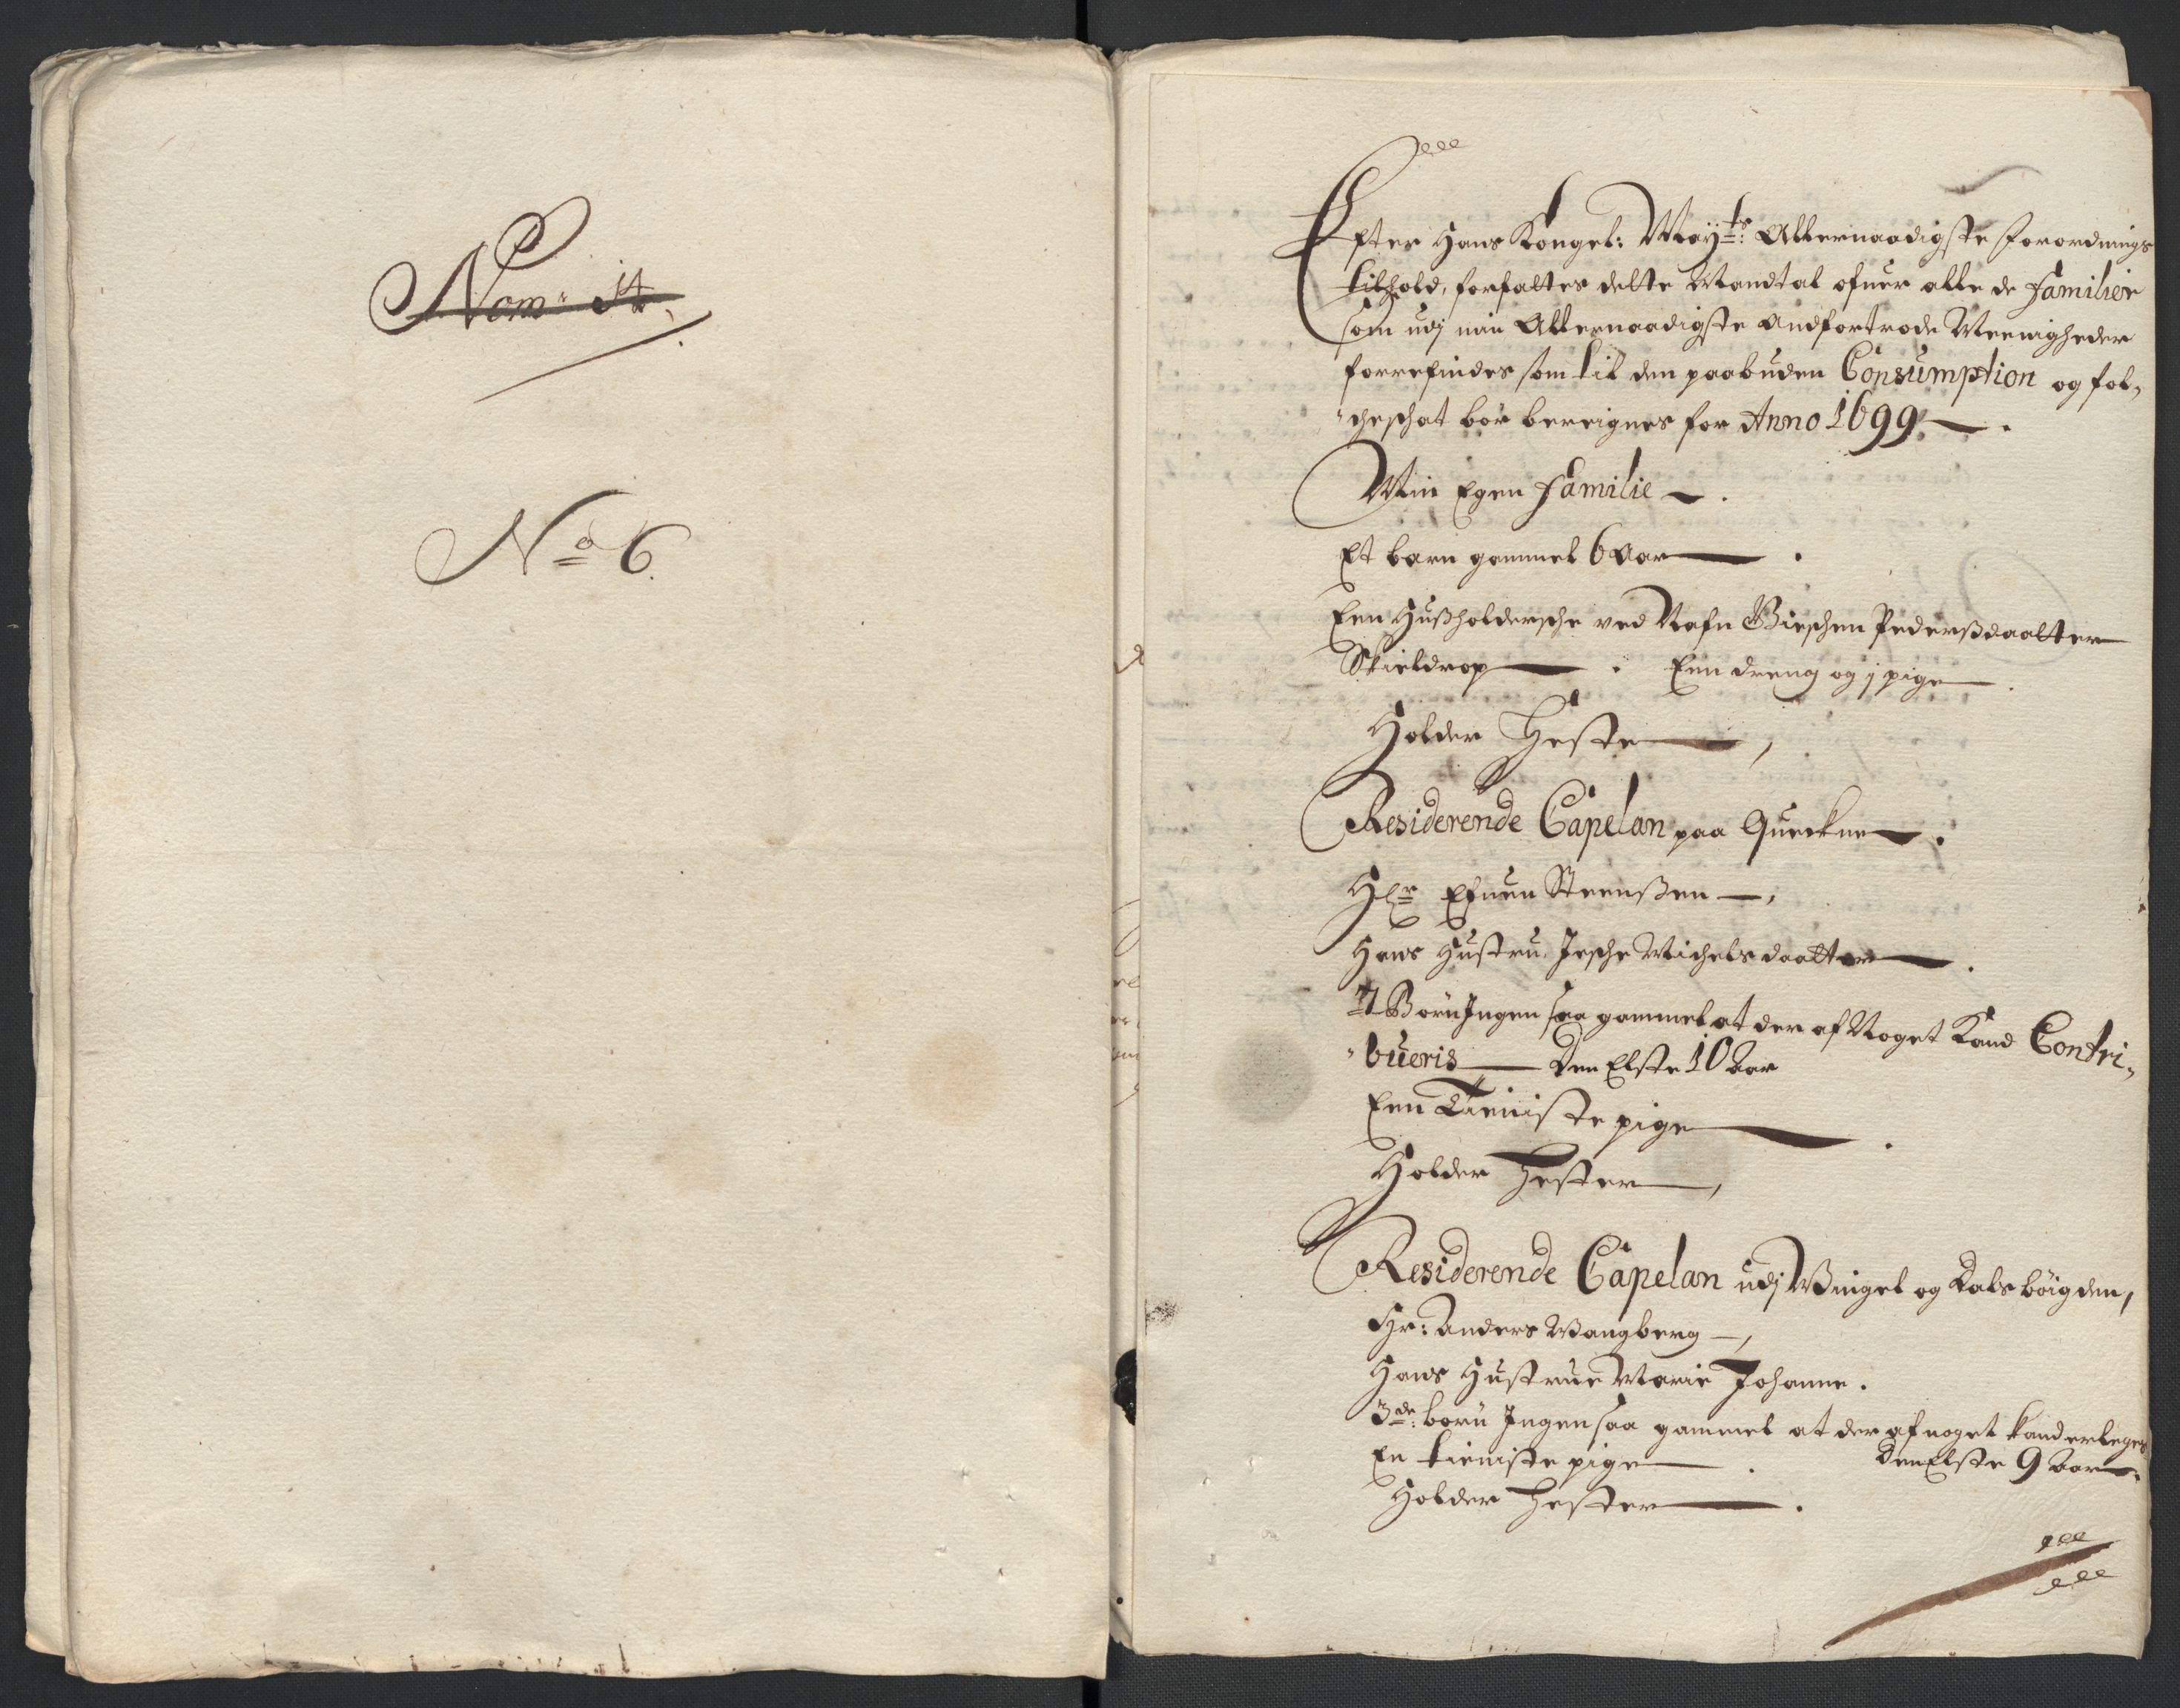 Nom: 14.
No 6.
Efter Hans Kongel: May:ts Allernaadigste forordnings
tilhold, forfattes dette Mandtal ofuer alle de Familier
som udj min Allernaadigste Andfortrode Meenigheder
forrefindes som til den paabuden Consumption og fol„
„cheschat bør bereignes for Anno 1699.
Min Egen Familie
Et barn gammel 6 Aar
Een Hußholdersche ved Nafn Gieschen Pedersdaatter
Skieldrop Een dreng og j pige
Holder Heste
Residerende Capelan paa Queckne
Hr Efuen Steenßen
Hans Hustru, Jesche Michelsdaatter
7 Børn Ingen saa gammel at der af Noget Kand Contri„
„bueris Den Elste 10 Aar
Een Tieniste pige
Holder Hester
Residerende Capelan udj Wingel og Dalsbøigden,
Hr: Anders Wangberg
Hans Hustrue Marie Johanne.
3de børn Ingen saa gammel at der af noget kand erleges
En tieniste pige Den Elste 9 Aar
Holder Hester